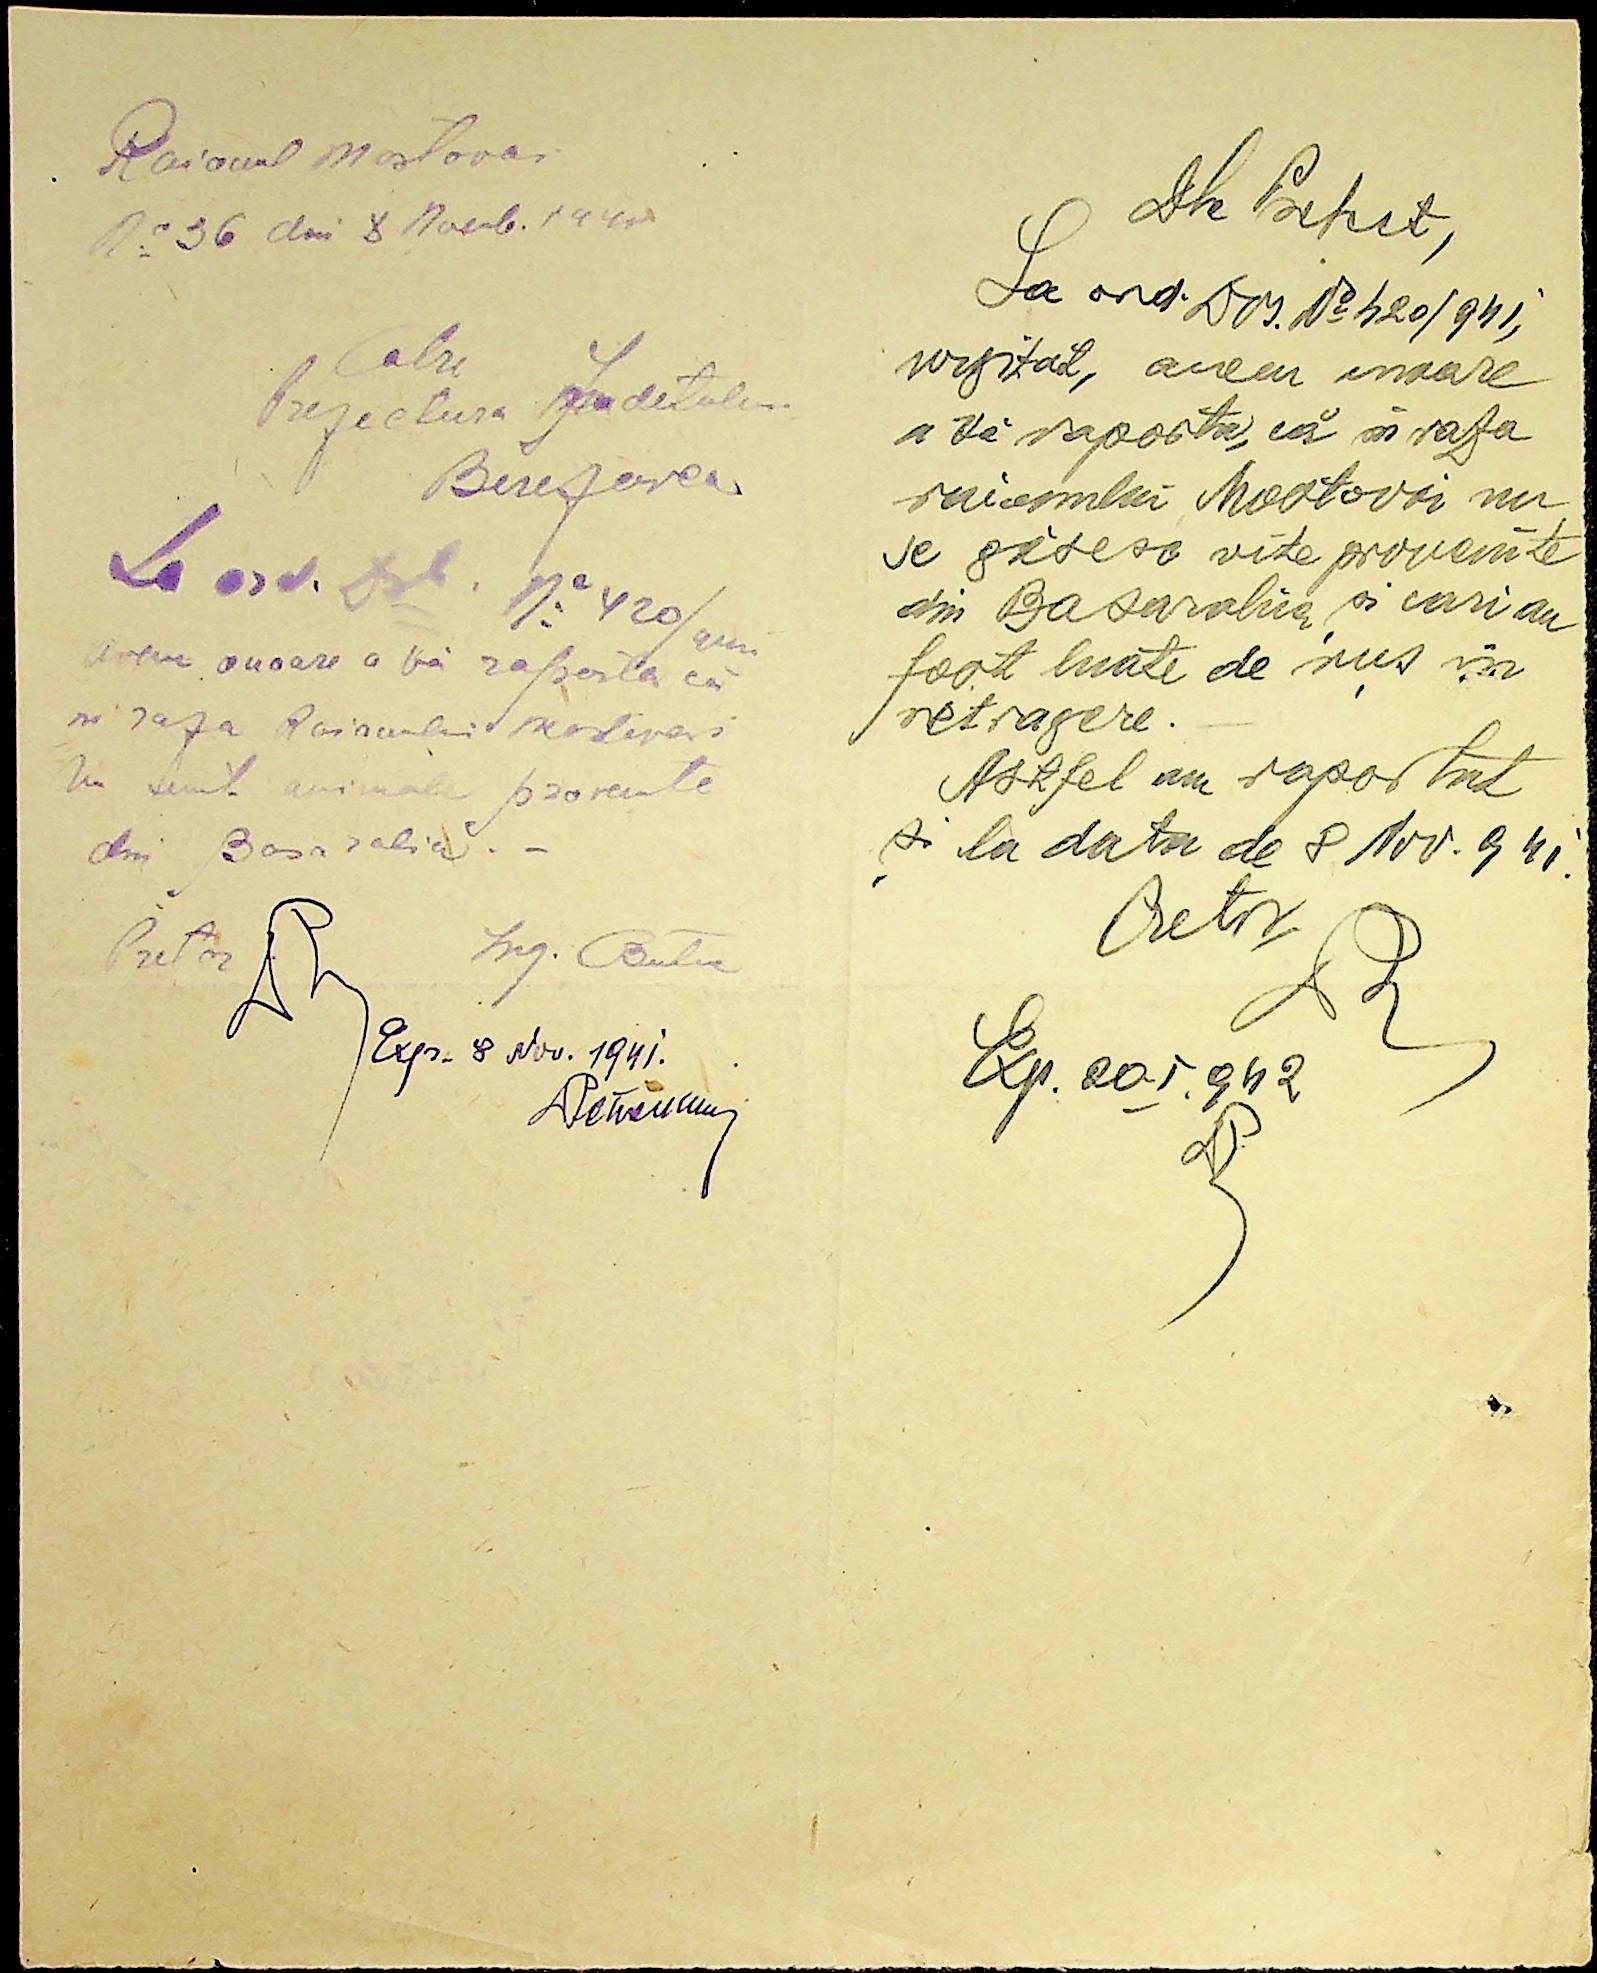 Raionul Mostovoi
No 36 din 8 Noemb. 1941
Catre
Prefectura Judetului
Berezovca
La ord. Dvs. No 420/941
avem onoare a vă raporta că
in raza Raionului Mostovoi
nu sunt animale provenite
din Basarabia. -
Pretor
Ing.
Exp. 8 Nov. 1941.
Dle Prefect,
La ord. Dvs. No 420/941,
urgitat, avem onoare
a vă raporta, că in raza
raionului Mostovoi nu
se găsesc vite provenite
din Basarabia, si cari au
fost luate de ruș in
retragere. -
Astfel am raportat
și la data de 8 Nov. 941.
Pretor,
Exp. 20.I.942